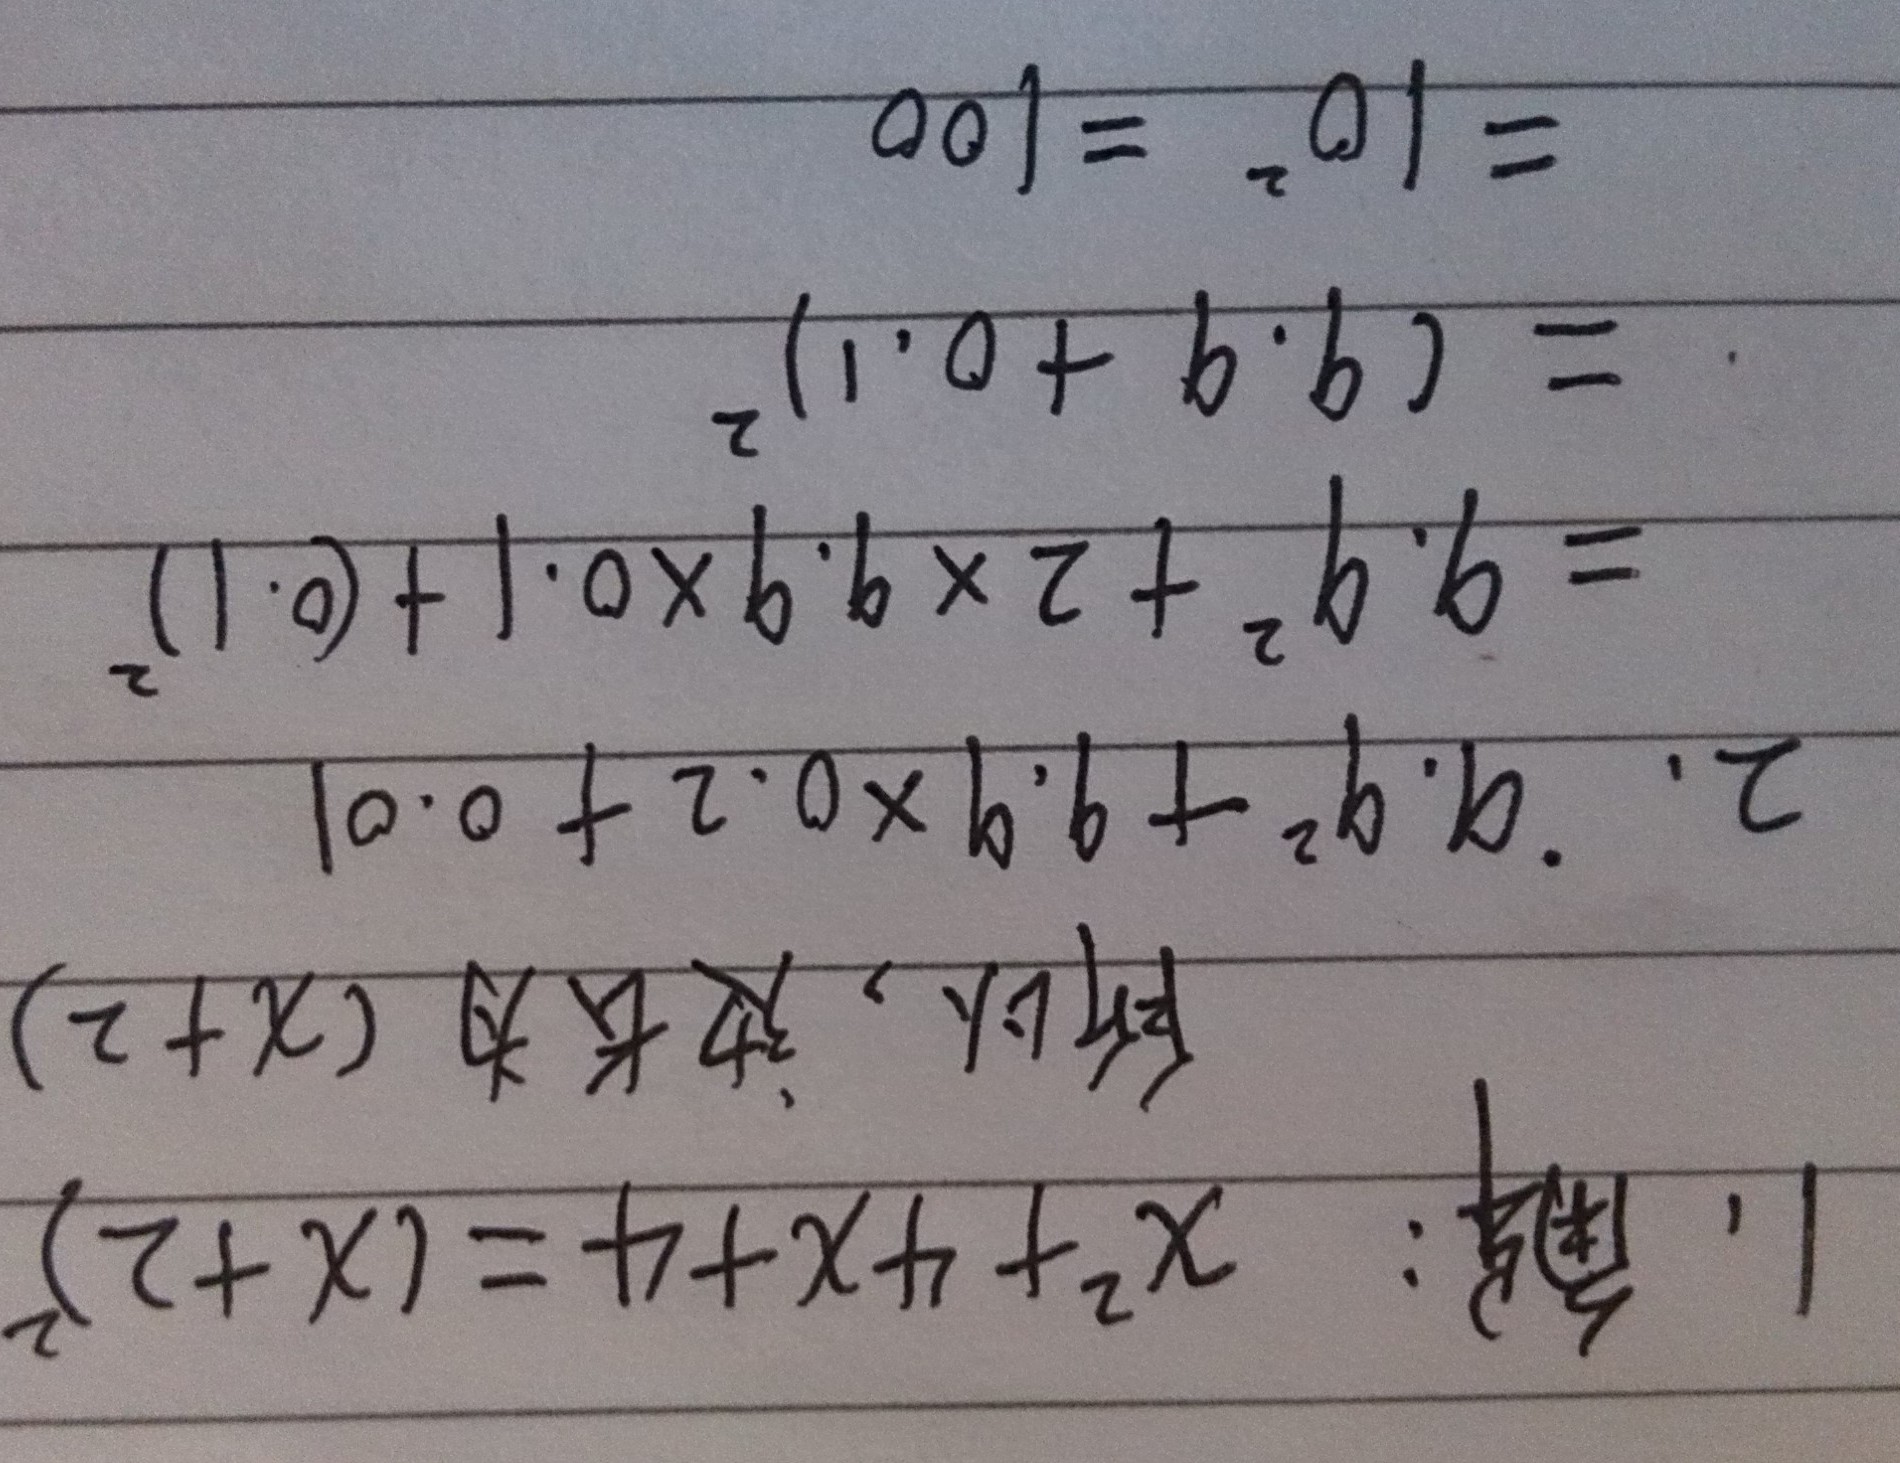 1. 解: x²+4x+4=(x+2)²
所以,边长为 (x+2)
2. 9.9²+9.9×0.2+0.01
=9.9²+2×9.9×0.1+(0.1)²
=(9.9+0.1)²
=10² =100